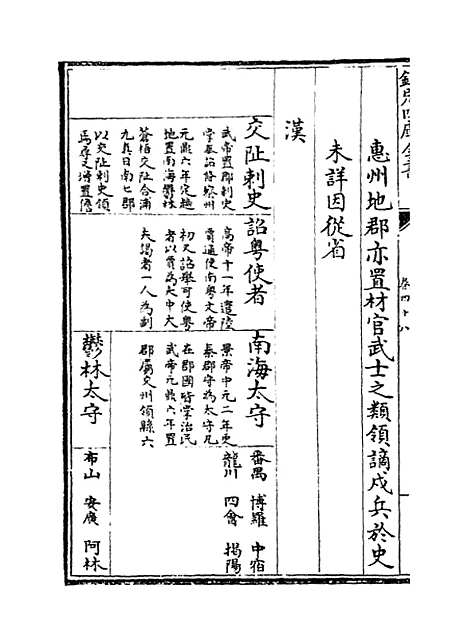 欽定四庫全書
卷四十八
惠州地郡亦置材官武士之類領謫戍兵於史
未詳因從省
漢
交阯刺史
武帝置郡刺史
掌奉詔條察州
元鼎六年定越
地置南海鬱林
蒼梧交阯合浦
九真日南七郡
以交阯刺史領
焉尋又增置儋
詔粤使者
高帝十一年遣陸
賈通使南粤文帝
初又詔舉可使粤
者以賈為太中大
夫謁者一人為副
南海太守
景帝中元二年更
秦郡守為太守凡
在郡國皆掌治民
武帝元鼎六年置
郡屬交州領縣六
番禺 博羅 中宿
龍川 四會 揭陽
鬱林太守
布山 安廣 阿林